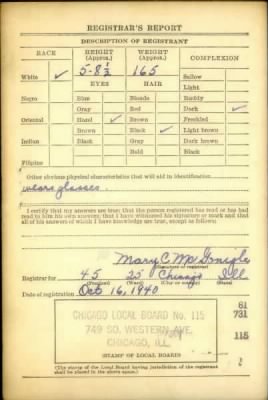 REGISTRAR'S REPORT
DESCRIPTION OF REGISTRANT
RACE HEIGHT (Approx.) WEIGHT (Approx.) COMPLEXION
White ✓ 5-8½ 165 Sallow
EYES HAIR Light
Negro Blue Blonde Ruddy
Gray Red Dark ✓
Oriental Hazel ✓ Brown Freckled
Brown Black ✓ Light brown
Indian Black Gray Dark brown
Bald Black
Filipino
Other obvious physical characteristics that will aid in identification
wears glasses
I certify that my answers are true; that the person registered has read or has had
read to him his own answers; that I have witnessed his signature or mark and that
all of his answers of which I have knowledge are true, except as follows:
Mary C. Mc
(Signature of registrar)
Registrar for 45 25 Chicago Ill
(Precinct) (Ward) (City or county) (State)
Date of registration Oct 16, 1940
CHICAGO LOCAL BOARD No. 115
749 SO. WESTERN AVE.
CHICAGO, ILL.
61
731
115
(STAMP OF LOCAL BOARD)
(The stamp of the Local Board having jurisdiction of the registrant
shall be placed in the above space.)